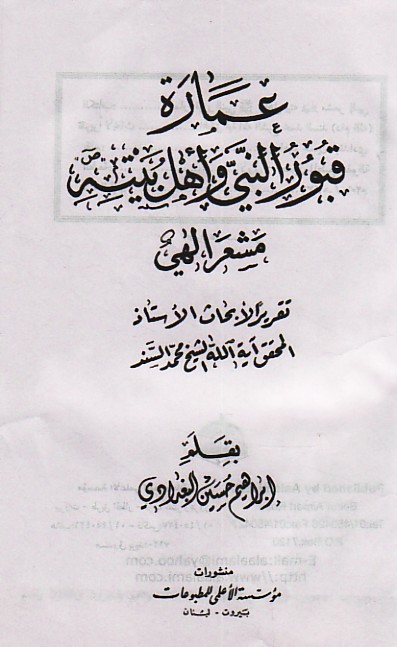 عمارة
قبور النبي وأهل بيته (ص)
مشعر إلهي
تقريرًا لأبحاث الأستاذ
المحقق آية الله الشيخ محمد السند
بقلم
إبراهيم حسين البغدادي
منشورات
مؤسسة الأعلمي للمطبوعات
بيروت - لبنان